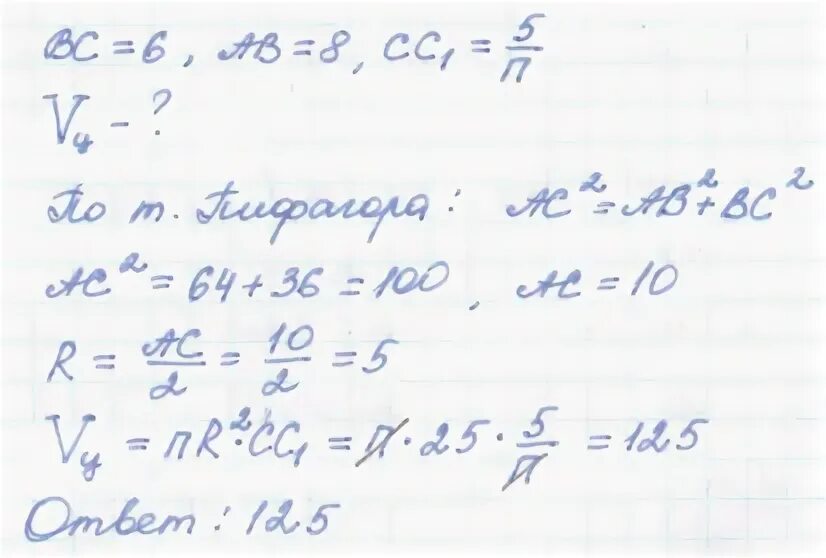 BC = 6, AB = 8, CC₁ = 5/π
Vц - ?
По т. Пифагора: AC² = AB² + BC²
AC² = 64 + 36 = 100, AC = 10
R = AC/2 = 10/2 = 5
Vц = πR²·CC₁ = π · 25 · 5/π = 125
Ответ: 125